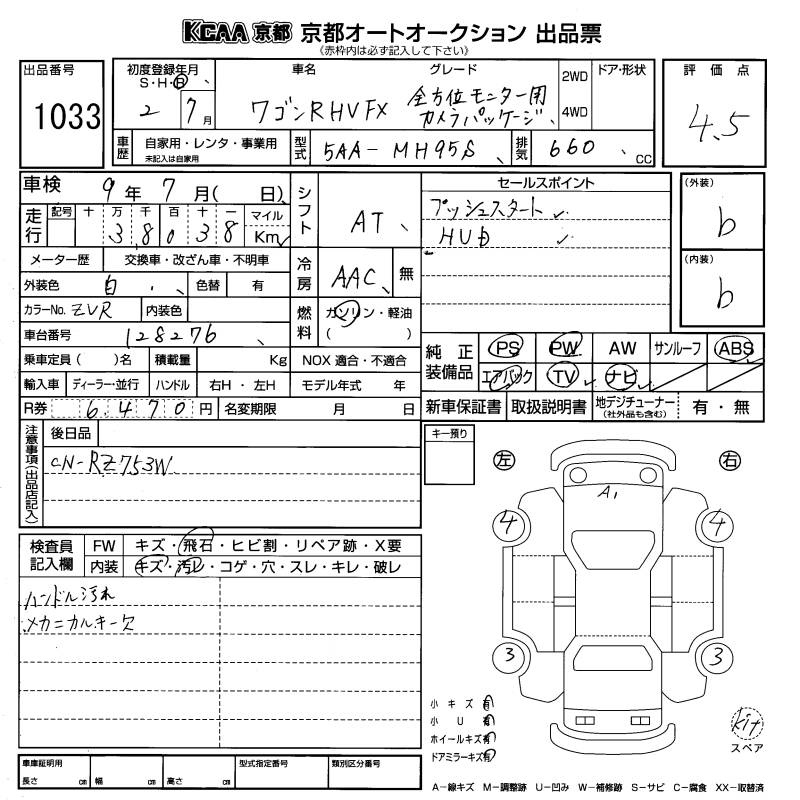 KCAA 京都 京都オートオークション 出品票
《赤枠内は必ず記入して下さい》
出品番号
1033
初度登録年月
S・H・Ⓡ
2 7月
車名
グレード
ワゴンR HV FX
全方位モニター用
カメラパッケージ
2WD
4WD
ドア・形状
評価点
4.5
車歴
自家用・レンタ・事業用
未記入は自家用
型式
5AA-MH95S
排気
660
CC
車検
9年7月(　日)
走行
記号 十 万 千 百 十 一
3 8 0 3 8
マイル
Km
メーター歴
交換車・改ざん車・不明車
外装色
白
色替
有
カラーNo. ZVR
内装色
車台番号
128276
乗車定員( )名
積載量
Kg
輸入車
ディーラー・並行
ハンドル
右H・左H
R券
6,470円
名変期限
月　日
シフト
AT
冷房
AAC
無
燃料
ガソリン・軽油
(　)
NOX 適合・不適合
モデル年式　年
セールスポイント
プッシュスタート
HUD
(外装)
b
(内装)
b
純正装備品
PS PW AW サンルーフ ABS
エアバック TV ナビ
新車保証書
取扱説明書
地デジチューナー
(社外品も含む)
有・無
注意事項(出品店記入)
後日品
CN-RZ753W
キー預り
左
右
A1
4
4
3
3
検査員記入欄
FW
キズ・飛石・ヒビ割・リペア跡・X要
内装
キズ・汚レ・コゲ・穴・スレ・キレ・破レ
ハンドル汚れ
メカニカルキー欠
小キズ有
小U有
ホイールキズ有
ドアミラーキズ有
kit
スペア
車庫証明用
長さ cm
幅 cm
高さ cm
型式指定番号
類別区分番号
A-線キズ M-調整跡 U-凹み W-補修跡 S-サビ C-腐食 XX-取替済